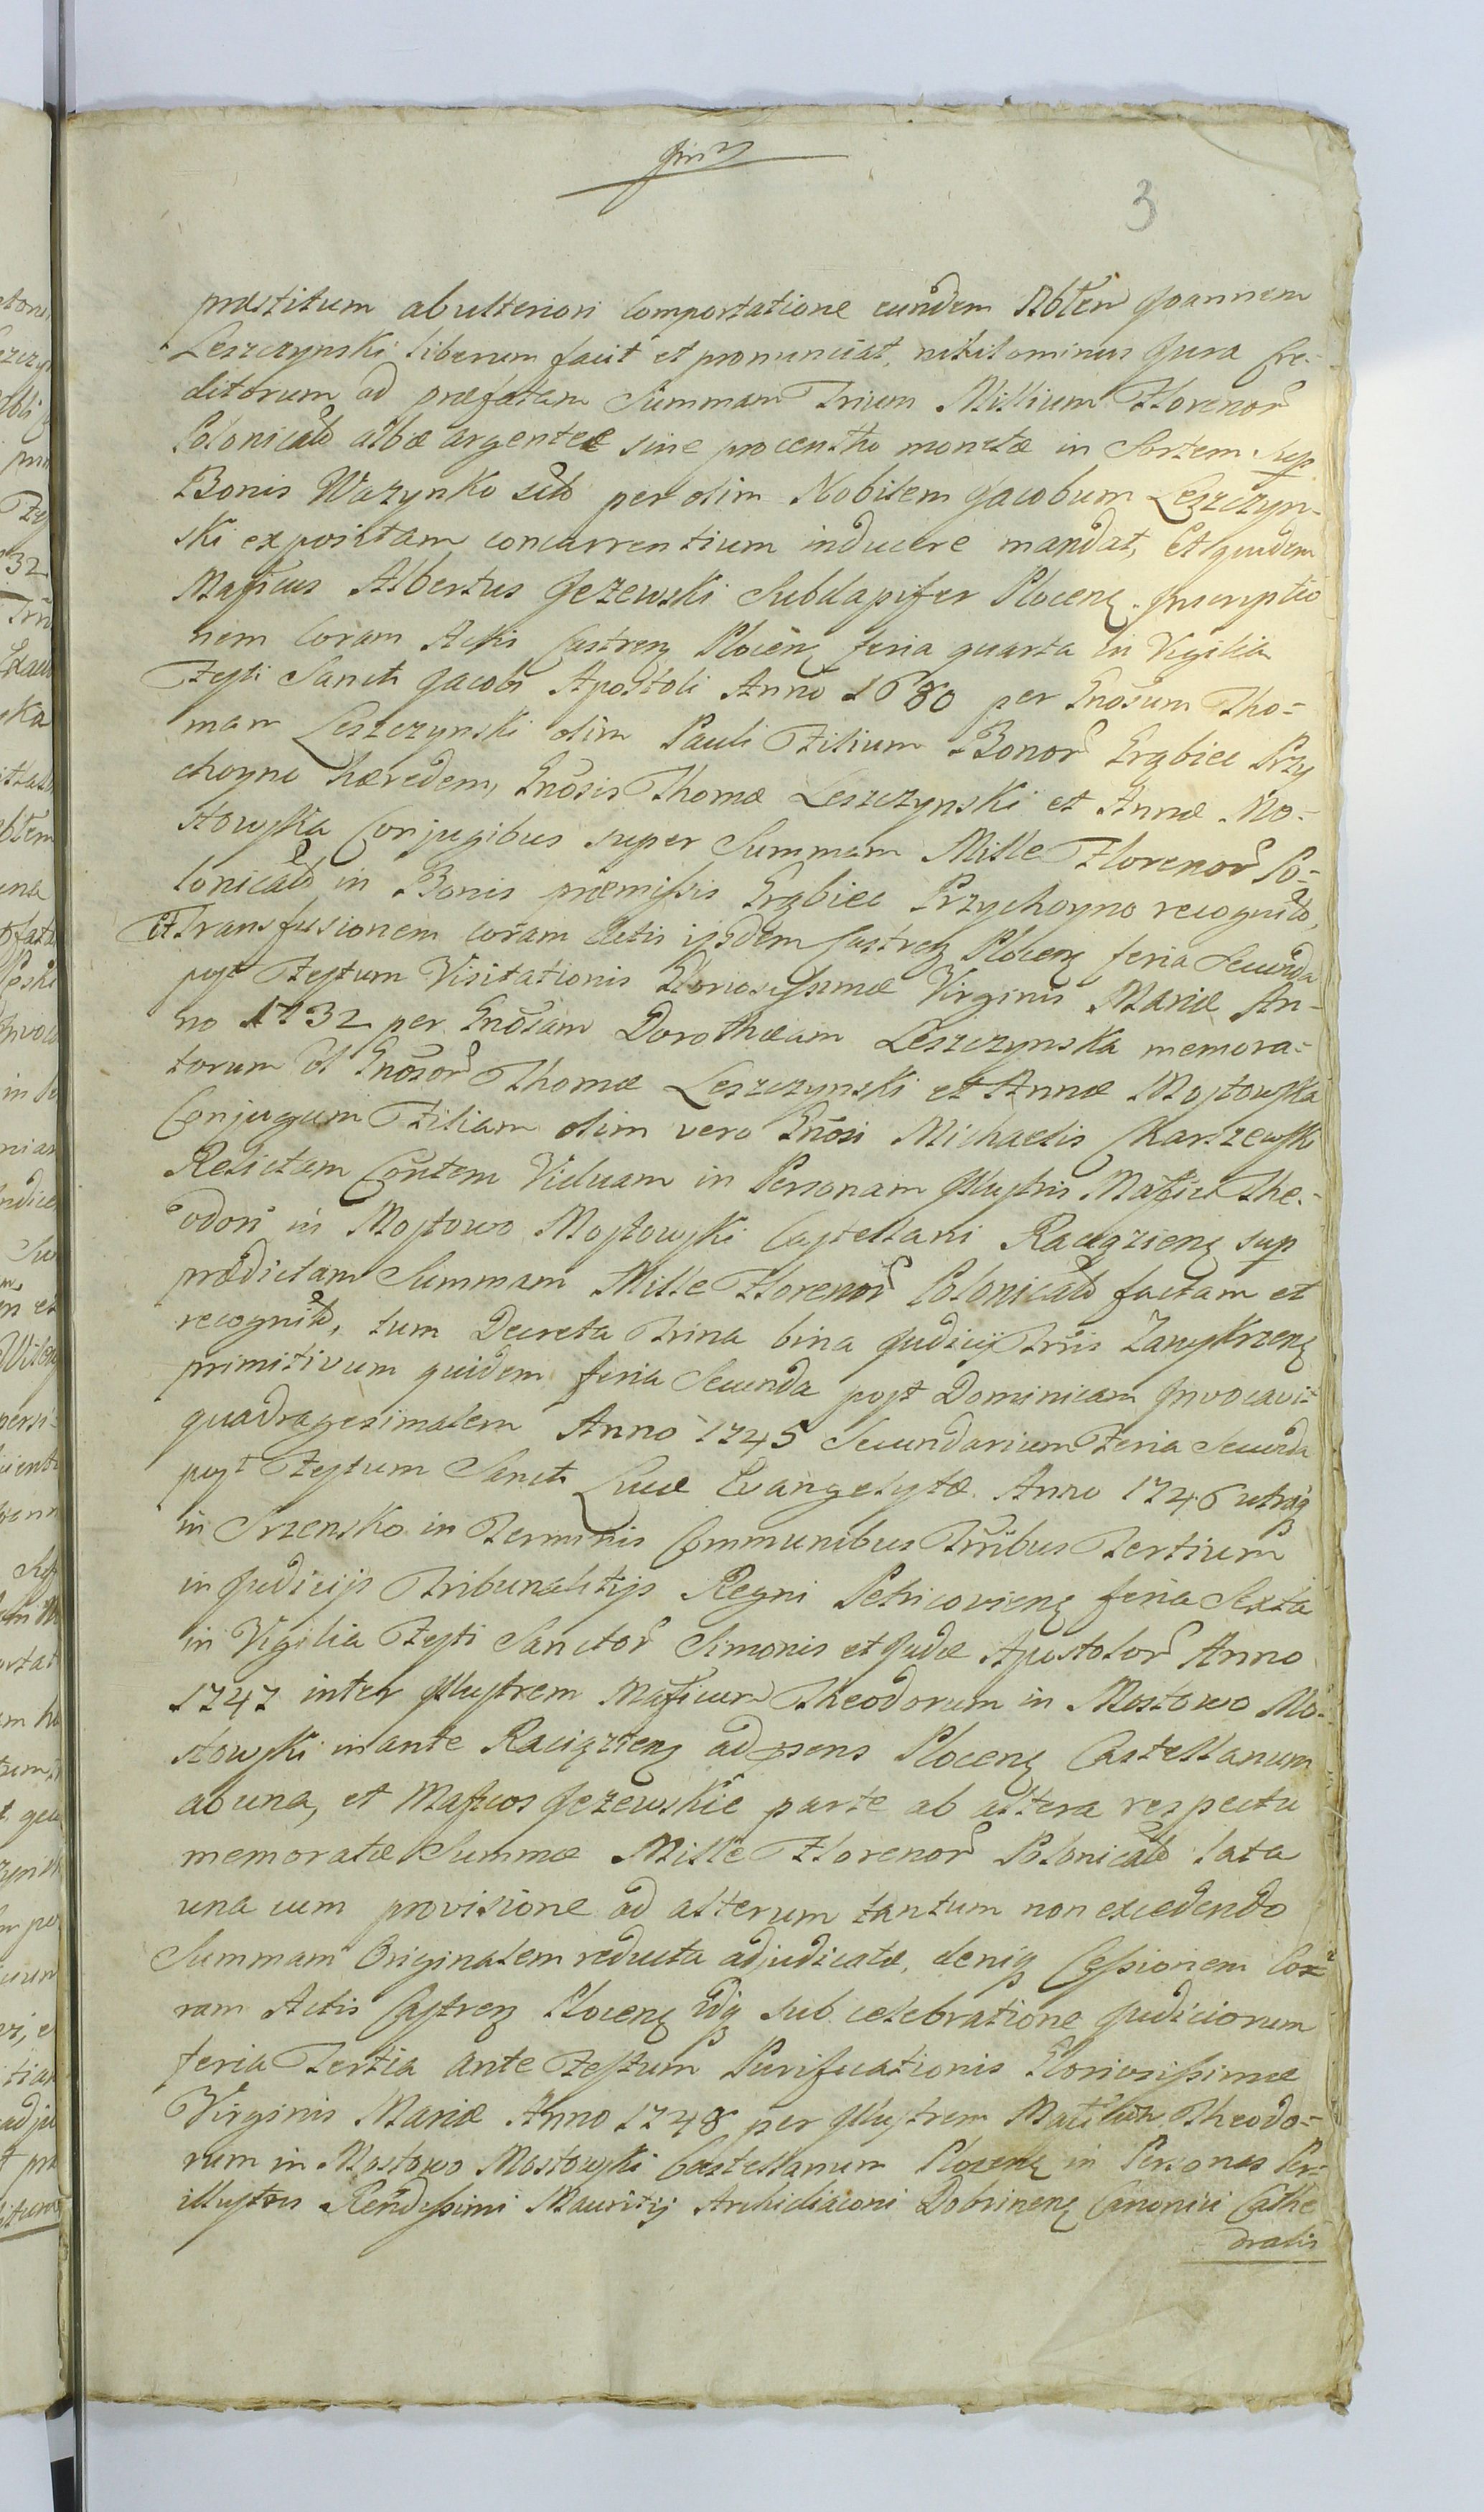 3
præstitum ab ulteriori Comportatione eundem Nobĩlem Joannem
Leszczynski liberum facit et pronunciat, nihilominus Jura Cre-
ditorum ad præfatam Summam Trium Millium Florenor
Polonical͠ albæ argenteæ sine procentho monetæ in Sortem sup
Bonis Wazynko sit͠o per olim Nobilem Jacobum Leszczyn-
ski expositam concurrentium inducere mandat, Et quidem
Mag̃ficus Albertus Jezewski Subdapifer Plocenę Inscriptio
nem Coram Actis Castrenę Plocenę feria quarta in Vigilia
Festi Sancti Jacobi Apostoli Anno 1680 per G̃nosum Tho-
mam Leszczynski olim Pauli Filium Bonor Grąbiec Przy
choyno hæredem, G̃nosis Thomæ Leszczynski et Annæ Mo-
stowska Conjugibus super Summam Mille Florenor Po-
lonical͠ in Bonis præmissis Grąbiec Przychoyno recognit͠o,
Et Transfusionem coram Actis ijsdem Castrenę Plocenę feria Secunda
post Festum Visitationis Gloriosissimæ Virginis Mariæ An-
no 1732 per G̃nosam Dorotheam Leszczynska memora-
torum Ol G̃nosor Thomæ Leszczynski et Annæ Mostowska
Conjugum Filiam olim vero G̃nosi Michaelis Charszewski
Relictam Con̄tem Viduam in Personam Illustris Mag̃fici The-
odori in Mostowo Mostowski Castellani Raciązenę sup
prædictam Summam Mille Florenor Polonical͠ factam et
recognit͠, tum Decreta Trina bina Judicij Trr̃is Zawskrzenę
primitivum quidem feria Secunda post Dominicam Invocavit
quadragesimalem Anno 1745 Secundarium Feria Secunda
post Festum Sancti Lucæ Evangelistæ Anno 1746 utrąq
in Srzensko in Terminis Communibus Trr̃ibus Tertium
in Judicijs Tribunalitijs Regni Petricovienę feria Sexta
in Vigilia Festi Sanctor Simonis et Judæ Apostolor Anno
1747 inter Illustrem Mag̃ficum Theodorum in Mostowo Mo-
stowski in ante Raciązienę ad pꝛsens Plocenę Castellanum
ab una, et Mag̃ficos Jezewskie parte ab altera respectu
memoratæ Summæ Mille Florenor Polonical͠ lata
una cum provisione ad alterum tantum non excedendo
Summam Originalem reducta adjudicatæ, deniq Cessionem Co-
ram Actis Castrenę Plocenę Idq sub celebratione Judiciorum
feria Tertia ante Festum Purificationis Gloriosissimæ
Virginis Mariæ Anno 1748 per Illustrem Mag̃ficum Theodo-
rum in Mostowo Mostowski Castellanum Plocenę in Personas Per-
illustris Rẽndissimi Mauritij Archidiaconi Dobrinenę Canonici Cathe
dralis